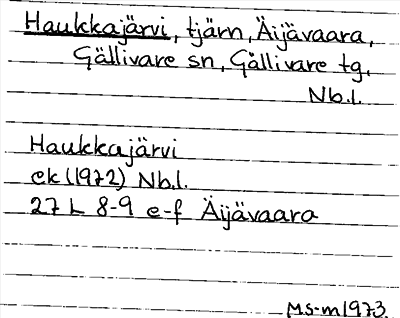 Haukkajärvi, tjärn, Äijävaara,
Gällivare sn, Gällivare tg,
Nb.l.
Haukkajärvi
ek (1972) Nb.l.
27 L 8-9 e-f Äijävaara
MS-m1973